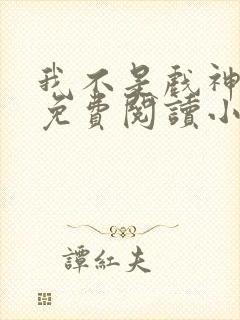 我不是戲神
免費閱讀小
譚紅夫